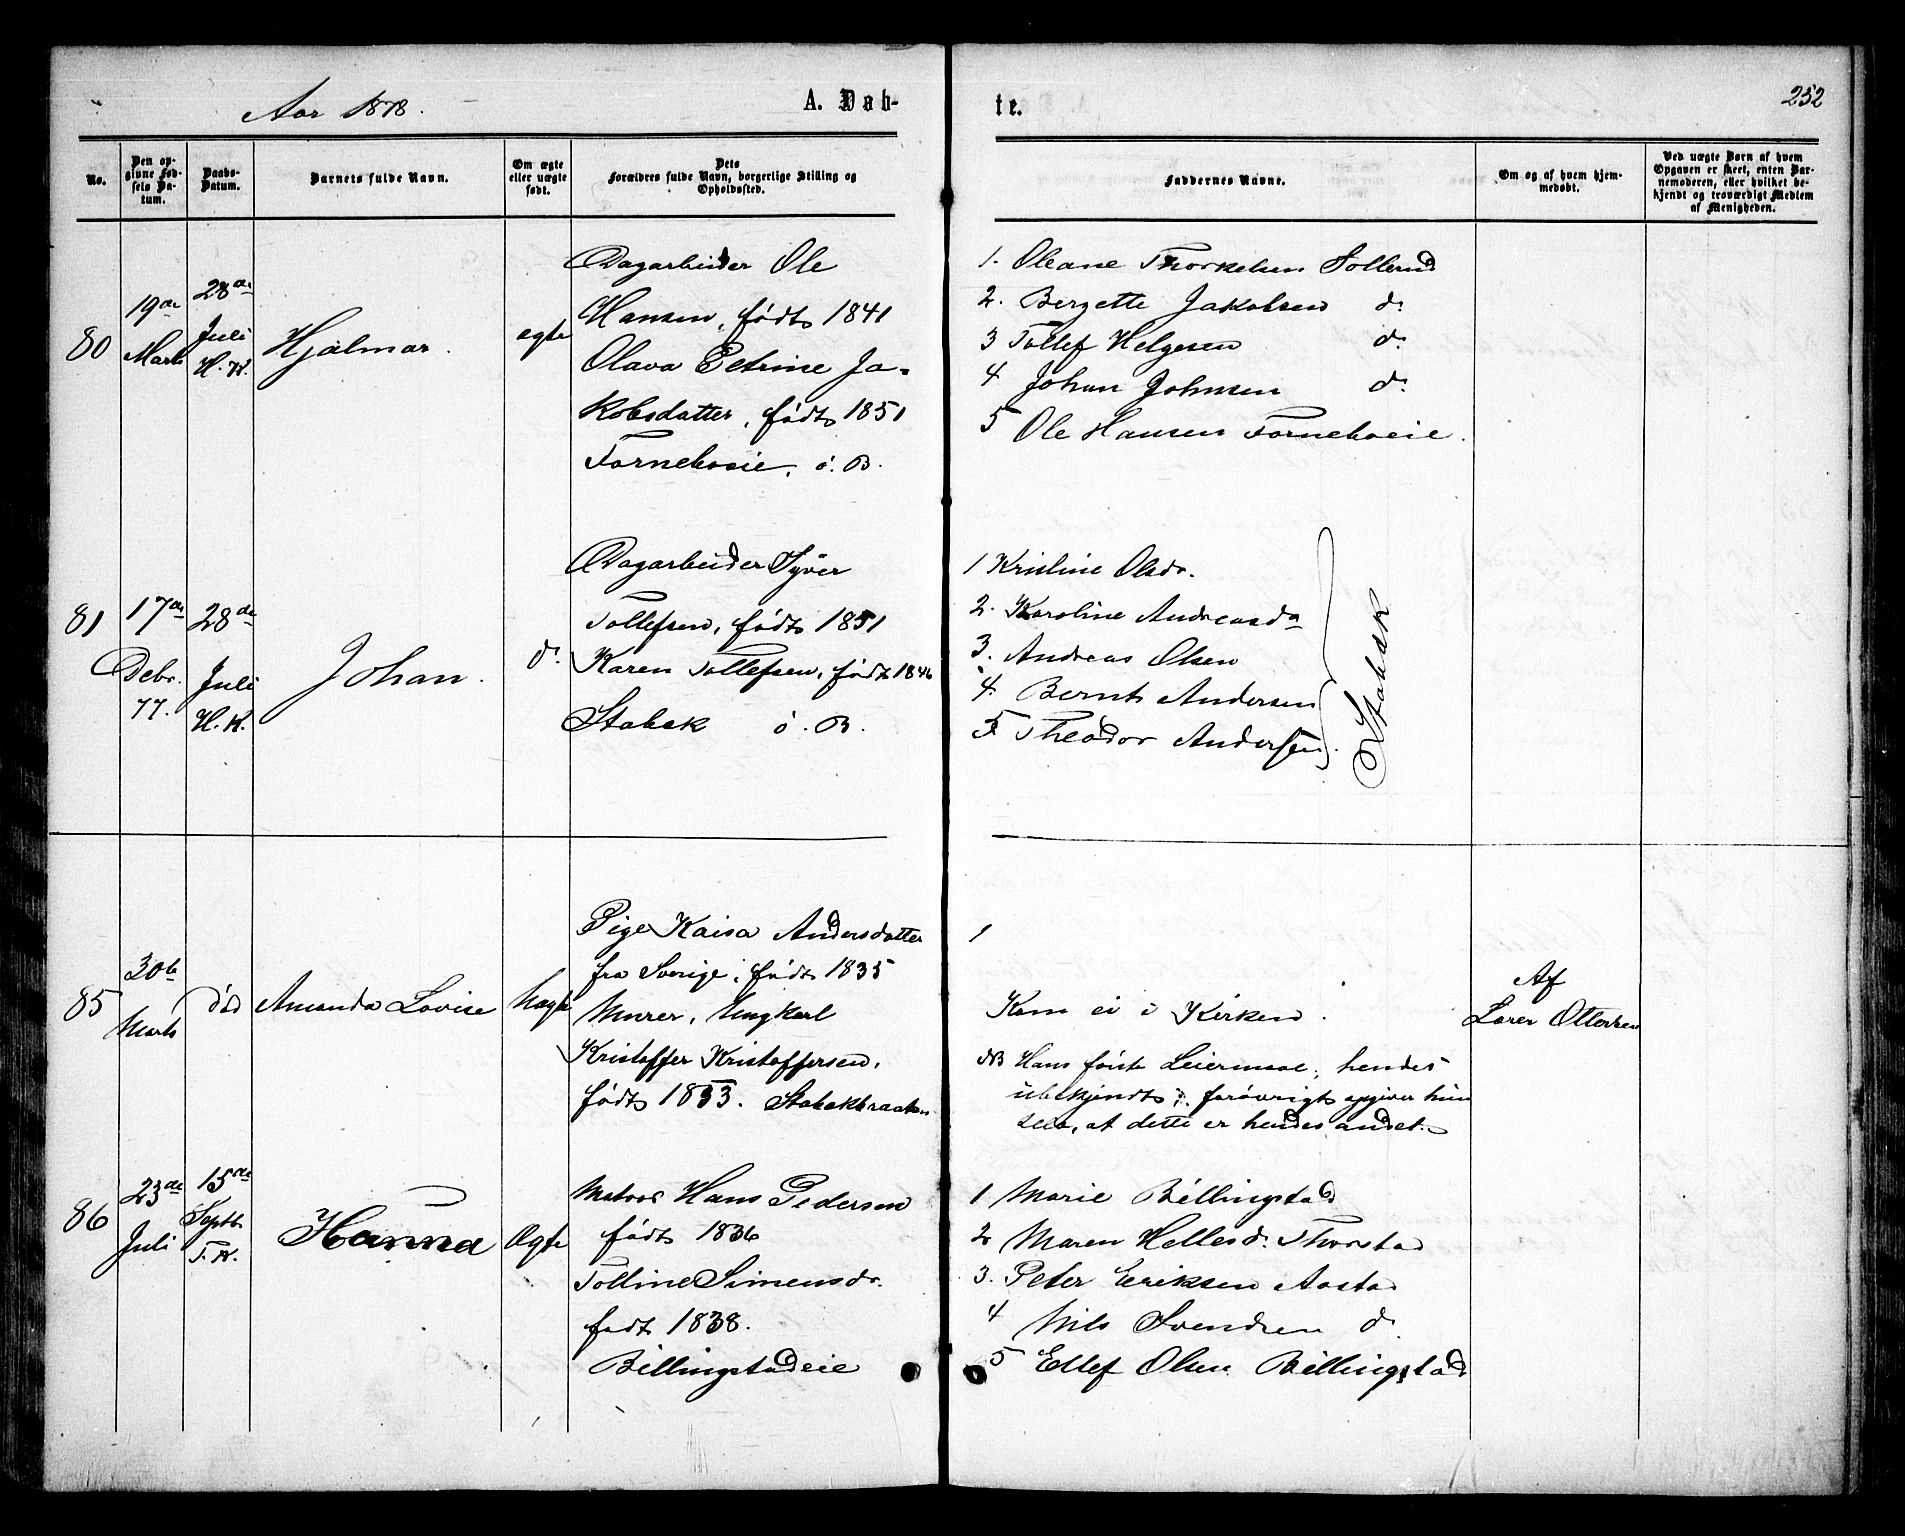 Aar 1878.
A. Døb-
te.
252
No.
Den op-
givne Fød-
sels Da-
tum.
Daabs-
Datum.
Barnets fulde Navn.
Om ægte
eller uægte
født.
Dets
Forældres fulde Navn, borgerlige Stilling og
Opholdssted.
Faddernes Navne.
Om og af hvem hjem-
medøbt.
Ved uægte Børn af hvem
Opgaven er skeet, enten Bar-
nemoderen, eller hvilket be-
kjendt og troværdigt Medlem
af Menigheden.
80
19de
Marts
28de
Juli
H. K.
Hjalmar.
ægte
Dagarbeider Ole
Hansen, født 1841
Olava Petrine Ja-
kobsdatter, født 1851
Forneboeie, ö. B.
1. Oleane Thorkelsen Sollerud
2. Bergette Jakobsen do
3 Tollef Helgesen do
4 Johan Johnsen do
5 Ole Hansen Forneboeie.
81
17de
Debr.
77.
28de
Juli
H. K.
Johan.
do
Dagarbeider Syver
Tollefsen, født 1851
Karen Tollefsen, født 1846
Stabæk ö. B.
1 Kristine Olsdr.
2. Karoline Andreasda
3. Andreas Olsen
4. Bernt Andersen
5. Theodor Andersen.
Stabæk
85
30te
Marts
död
Amanda Lovise
Uægte
Pige Kaisa Andersdatter
fra Sverige, født 1835
Murer, Ungkarl
Kristoffer Kristoffersen,
født 1833. Stabækbraaten
1
Kom ei i Kirken.
NB Hans første Leiermaal, hendes
ubekjendt, forøvrigt opgiver hun
selv, at dette er hendes andet.
Af
Lorer Ottersen
86
23de
Juli
15de
Septb.
T. K.
Hanna
Ægte
Matros Hans Pedersen
født 1836
Tolline Simensdr.
født 1838.
Billingstadeie
1 Marie Billingstad
2 Maren Hellesd. Thorstad
3. Peter Eriksen Aastad
4 Nils Svendsen do
5 Ellef Olsen Billingstad